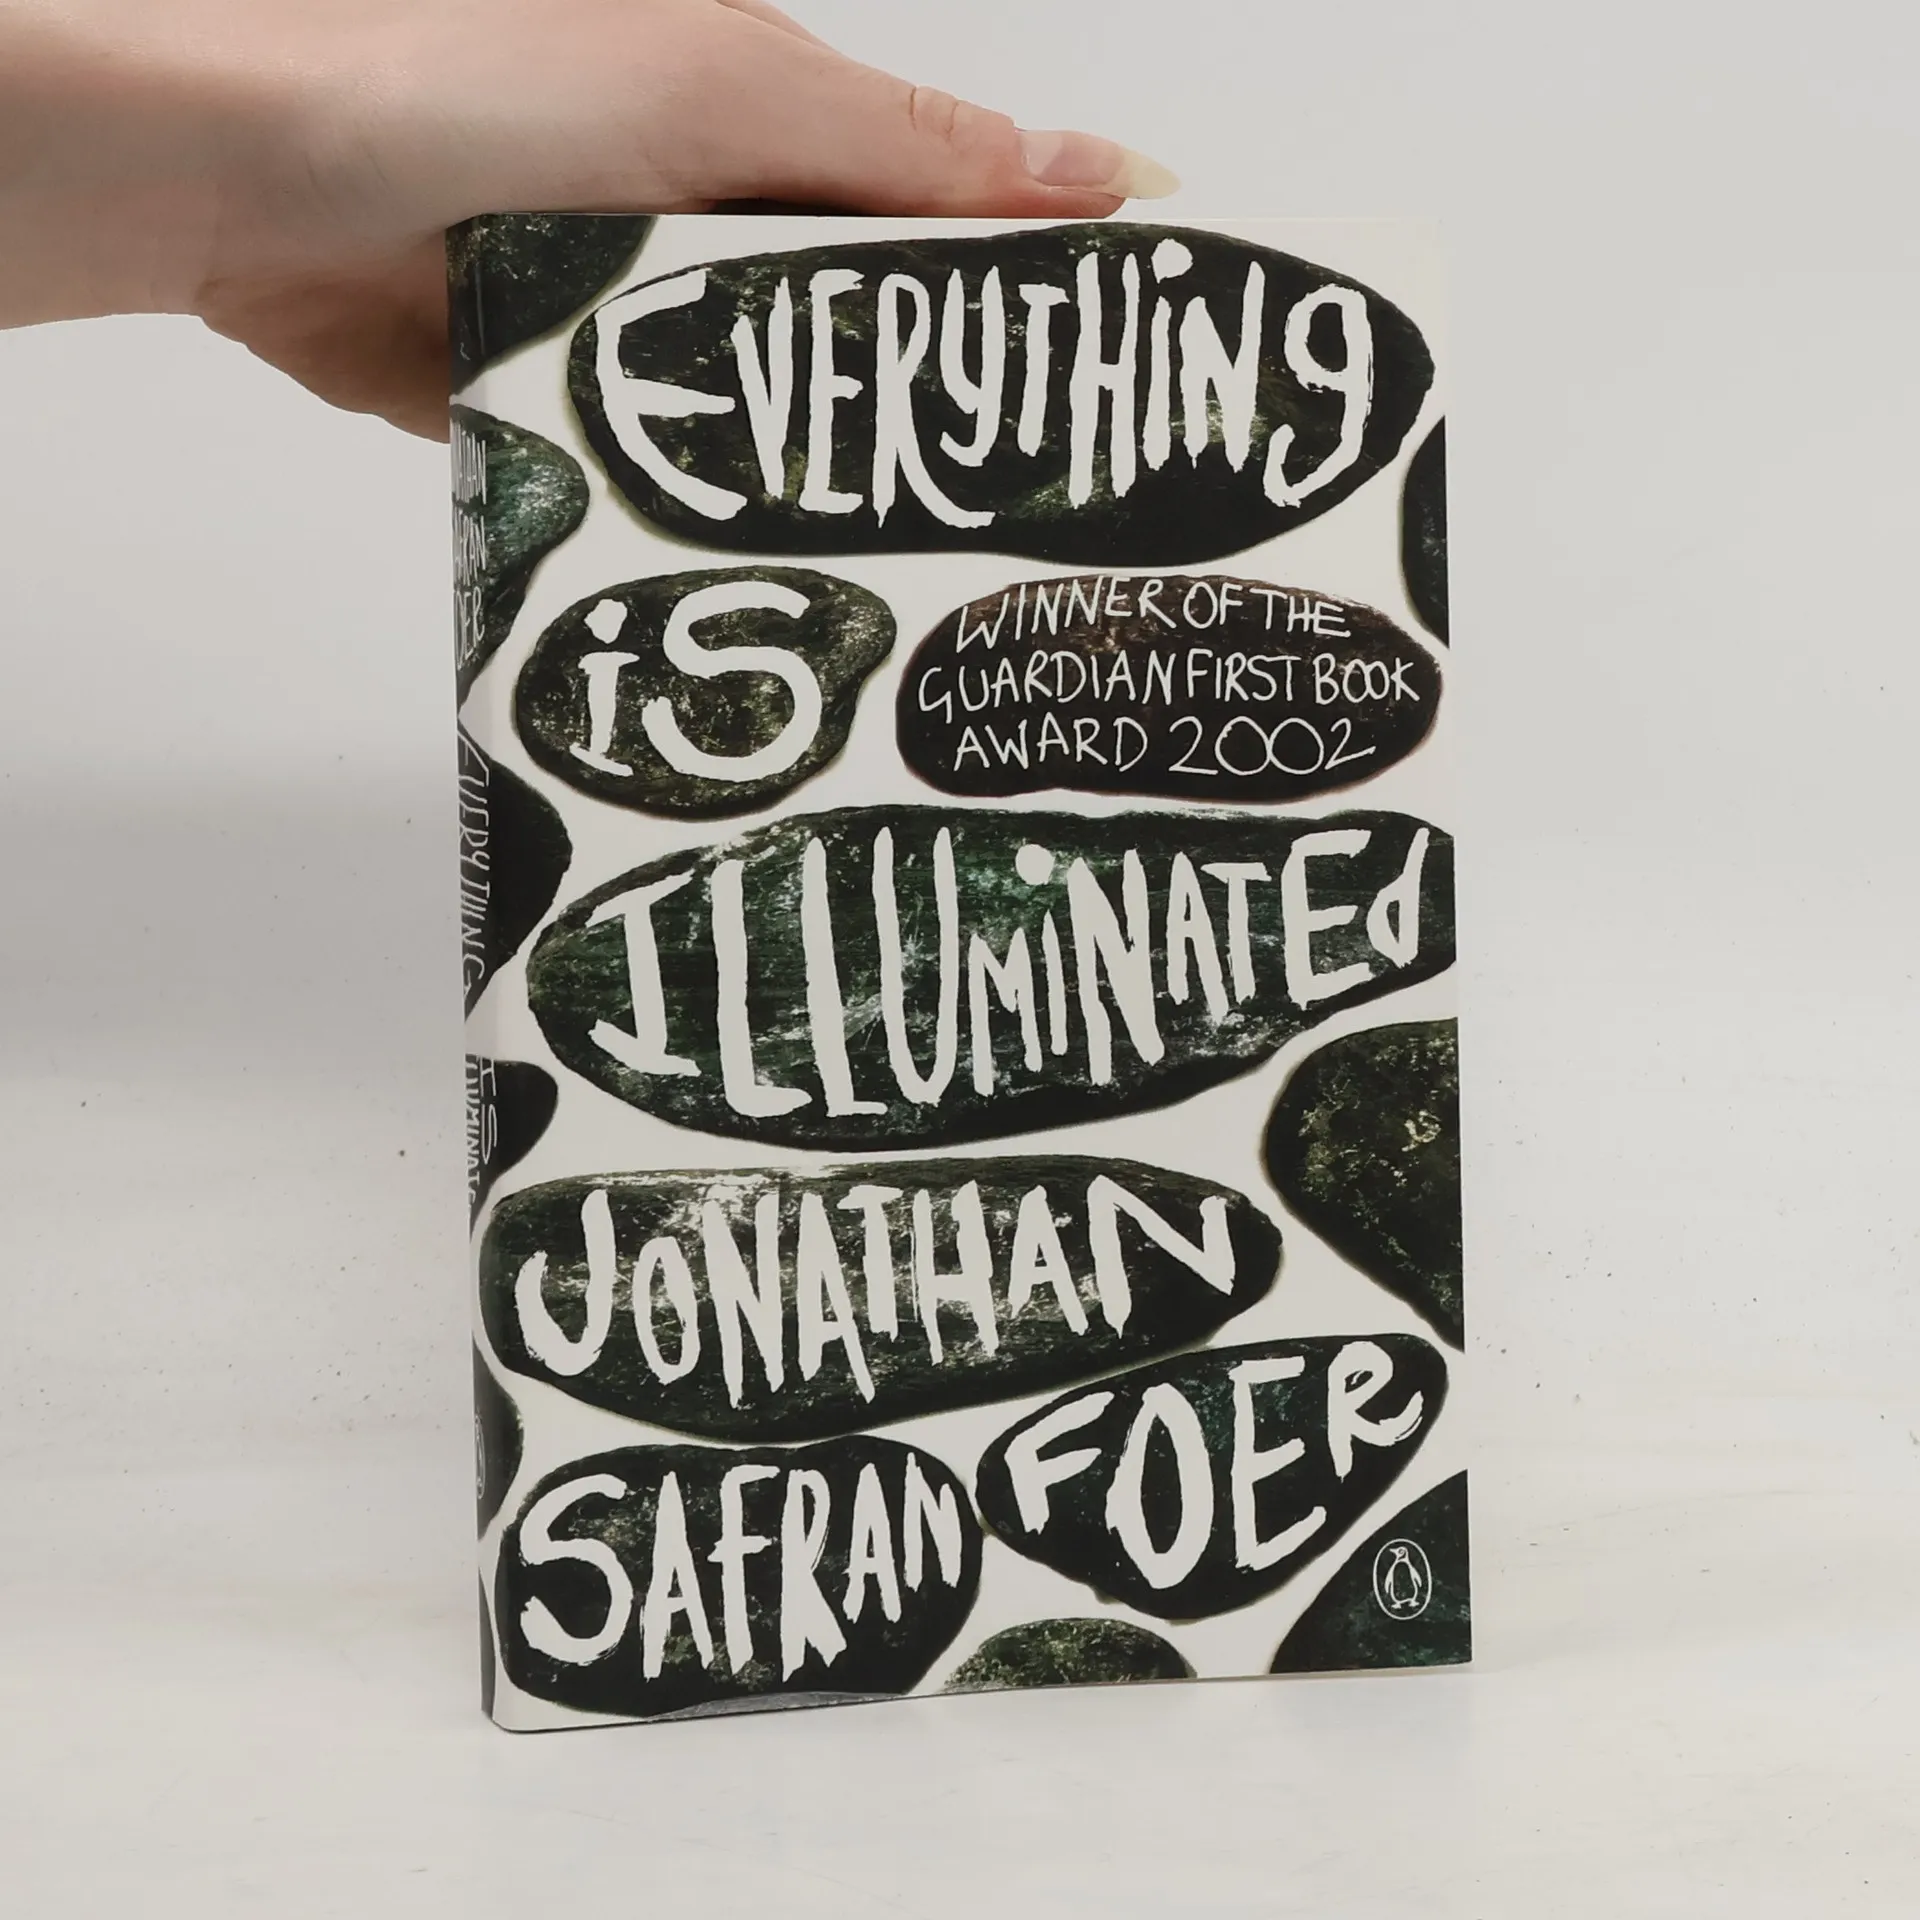 EVERYTHiNg
iS
WINNER OF THE
GUARDIAN FIRST BOOK
AWARD 2002
ILLUMiNATEd
JONATHAN
SAFRAN
FOER
EVERYTHING
IS